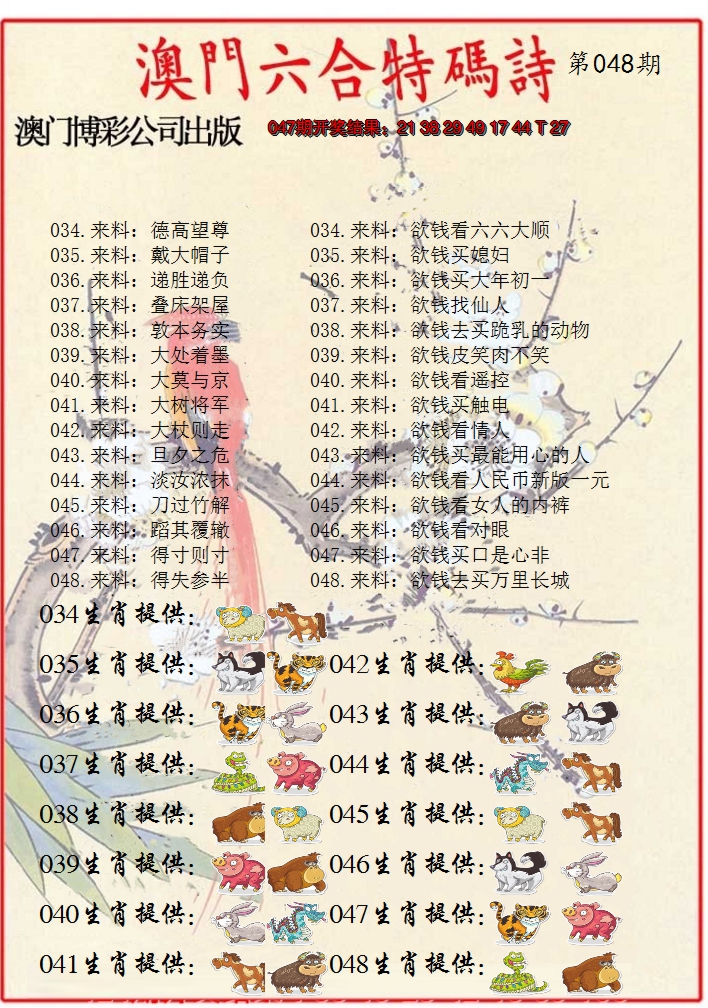 澳門六合特碼詩 第048期
澳门博彩公司出版 047期开奖结果：21 38 29 49 17 44 T 27
034.来料：德高望尊 034.来料：欲钱看六六大顺
035.来料：戴大帽子 035.来料：欲钱买媳妇
036.来料：递胜递负 036.来料：欲钱买大年初一
037.来料：叠床架屋 037.来料：欲钱找仙人
038.来料：敦本务实 038.来料：欲钱去买跪乳的动物
039.来料：大处着墨 039.来料：欲钱皮笑肉不笑
040.来料：大莫与京 040.来料：欲钱看遥控
041.来料：大树将军 041.来料：欲钱买触电
042.来料：大杖则走 042.来料：欲钱看情人
043.来料：旦夕之危 043.来料：欲钱买最能用心的人
044.来料：淡汝浓抹 044.来料：欲钱看人民币新版一元
045.来料：刀过竹解 045.来料：欲钱看女人的内裤
046.来料：蹈其覆辙 046.来料：欲钱看对眼
047.来料：得寸则寸 047.来料：欲钱买口是心非
048.来料：得失参半 048.来料：欲钱去买万里长城
034生肖提供：
035生肖提供： 042生肖提供：
036生肖提供： 043生肖提供：
037生肖提供： 044生肖提供：
038生肖提供： 045生肖提供：
039生肖提供： 046生肖提供：
040生肖提供： 047生肖提供：
041生肖提供： 048生肖提供：